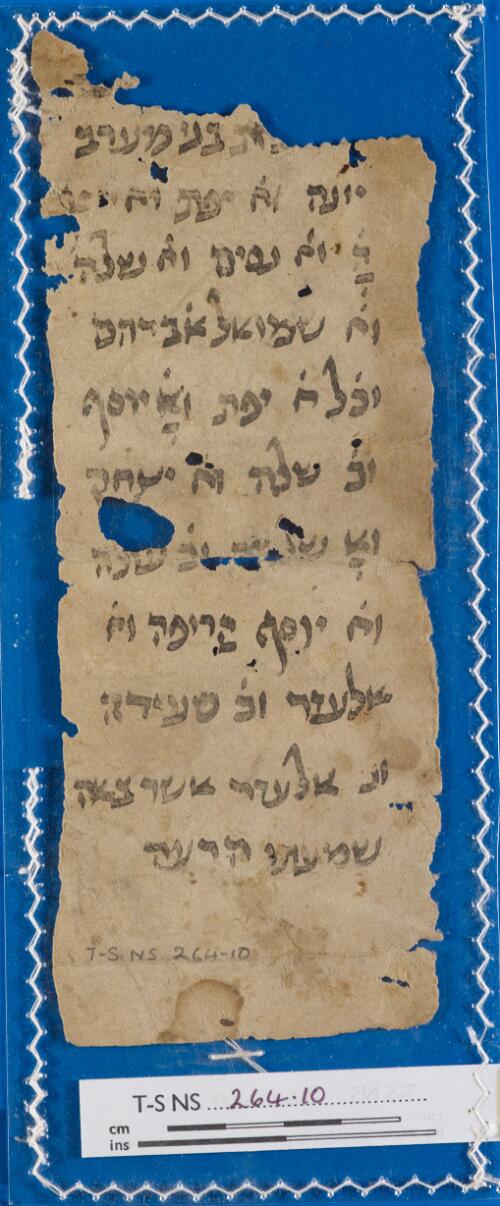 בני מערב
יונה וא יפת וא
וא נסים וא שלה
וא שמואל אברהם
וכל א יפת וא יוסף
וב שלה וא יצחק
וא וב שלה
וא יוסף וא
אלעזר וב סעידה
וב אלעזר אשר באה
שמעתו הרעה
T-S NS 264-10
T-S NS 264.10
cm
ins